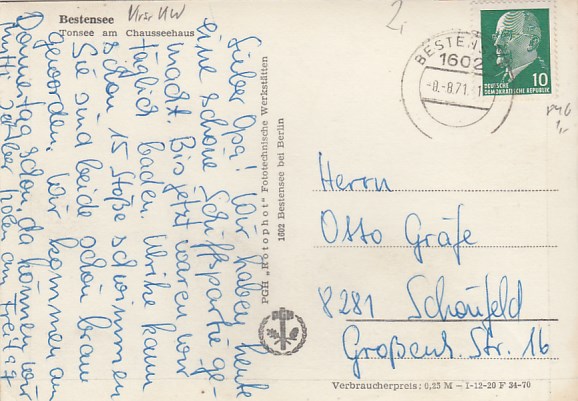 Bestensee
Tonsee am Chausseehaus
Krs. KW
2,-
BESTENSEE
1602
-8.-8.71.
10
DEUTSCHE
DEMOKRATISCHE REPUBLIK
1,-
Lieber Opa! Wir haben heute
eine schöne Schiffspartie ge-
macht. Bis jetzt waren wir
täglich baden. Ulrike kann
schon 15 Stöße schwimmen
Sie sind beide schön braun
geworden. Wir kommen am
Donnerstag schon, da können wir
selber holen am Freitag
PGH „Rotophot" Fototechnische Werkstätten
1602 Bestensee bei Berlin
Herrn
Otto Gräfe
8281 Schönfeld
Großenh. Str. 16
Verbraucherpreis: 0,25 M — I-12-20 F 34-70